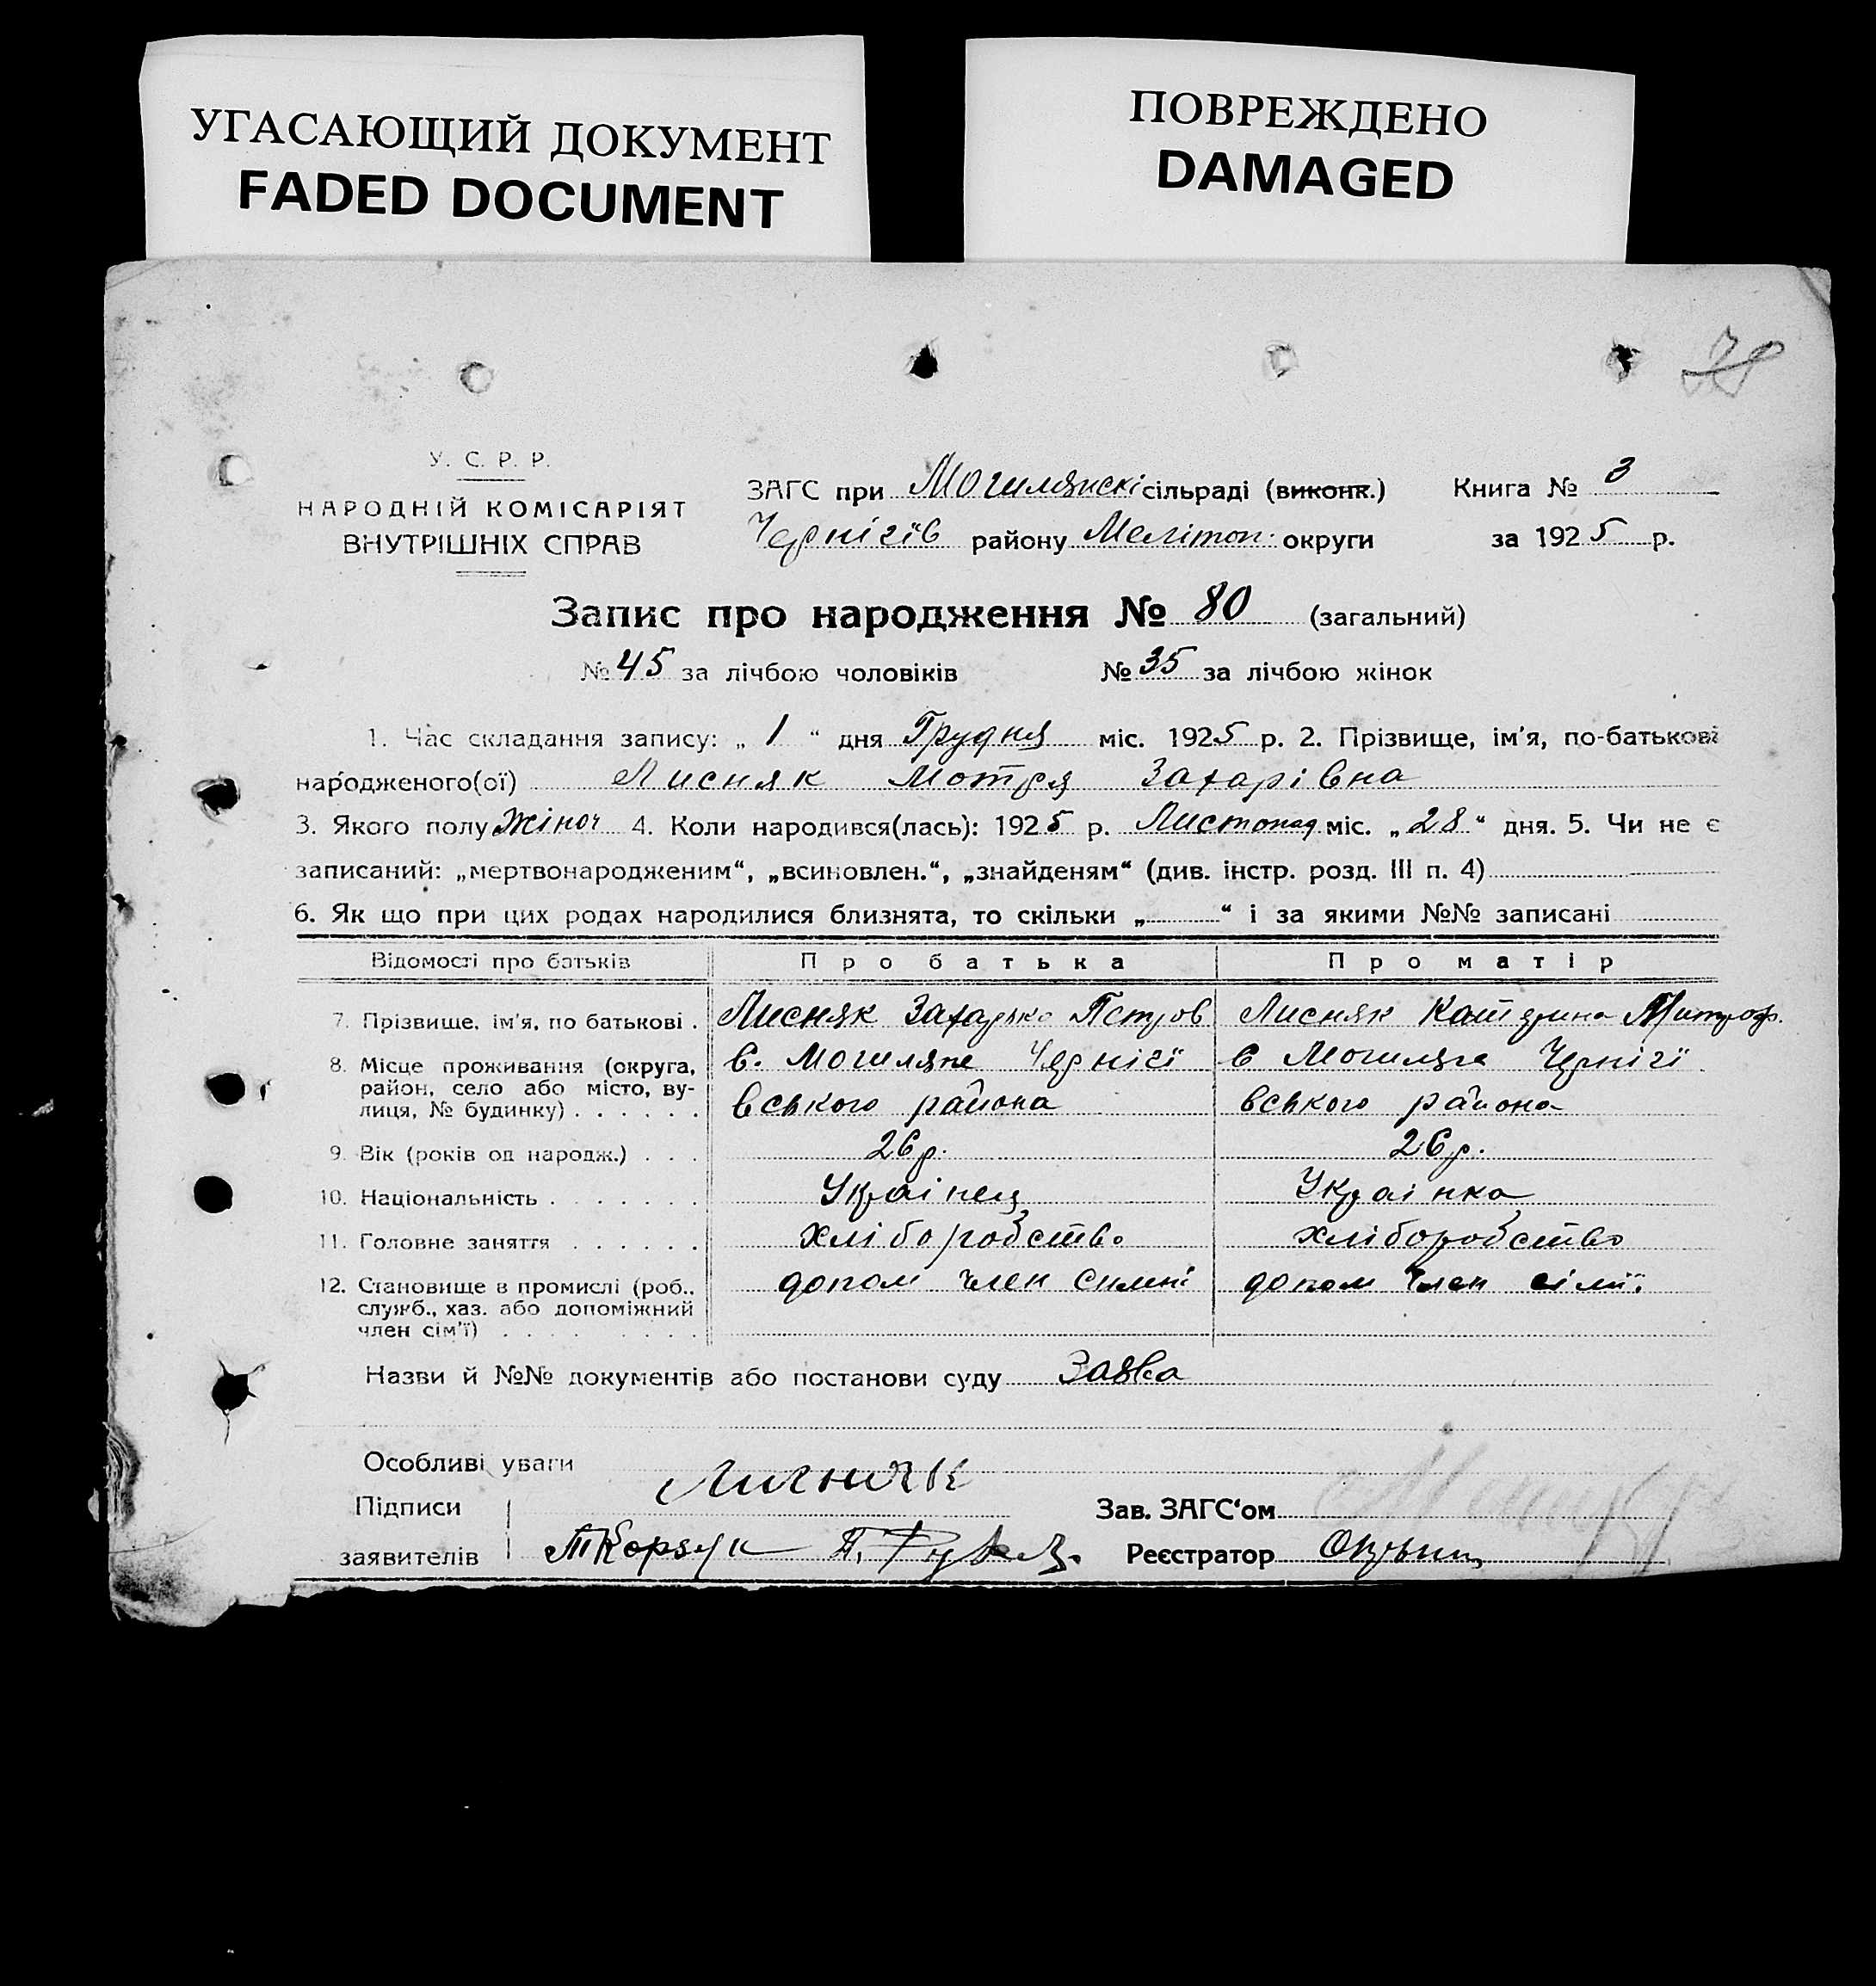 УГАСАЮЩИЙ ДОКУМЕНТ
FADED DOCUMENT
ПОВРЕЖДЕНО
DAMAGED
У. С. Р. Р.
НАРОДНІЙ КОМІСАРІЯТ
ВНУТРІШНІХ СПРАВ
ЗАГС при Могилянскі сільраді (виконк.) Книга № 3
Чернігів району Мелітоп. округи за 1925 р.
Запис про народження № 80 (загальний)
№ 45 за лічбою чоловіків № 35 за лічбою жінок
1. Час складання запису: „ 1 “ дня Грудня міс. 1925 р. 2. Прізвище, ім'я, по-батькові
народженого(ої) Лисняк Мотря Захарівна
3. Якого полу Жіноч 4. Коли народився(лась): 1925 р. Листопад міс. „ 28 “ дня. 5. Чи не є
записаний: „мертвонародженим“, „всиновлен.“, „знайденям“ (див. інстр. розд. III п. 4)
6. Як що при цих родах народилися близнята, то скільки „ “ і за якими №№ записані
Відомості про батьків Про батька Про матір
7. Прізвище, ім'я, по батькові . Лисняк Захарько Петров Лисняк Катерина Митроф.
8. Місце проживання (округа, в. Могиляне Чернігї в Могиляне Чернігї
район, село або місто, ву-
лиця, № будинку) . . . . . . вського района вського района
9. Вік (років од народж.) . . . 26 р. 26 р.
10. Національність . . . . . . . Украінец Украінка
11. Головне заняття . . . . . . хліборобство хліборобство
12. Становище в промислі (роб., допом член симні допом член сімії.
служб., хаз. або допоміжний
член сім'ї) . . . .
Назви й №№ документів або постанови суду Заява
Особливі уваги
Лисняк
Підписи Зав. ЗАГС‘ом
заявителів Реєстратор